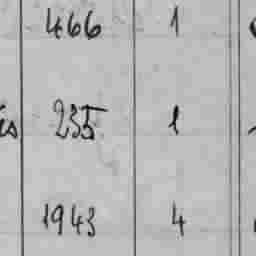 466 1
is 235 1
1943 4